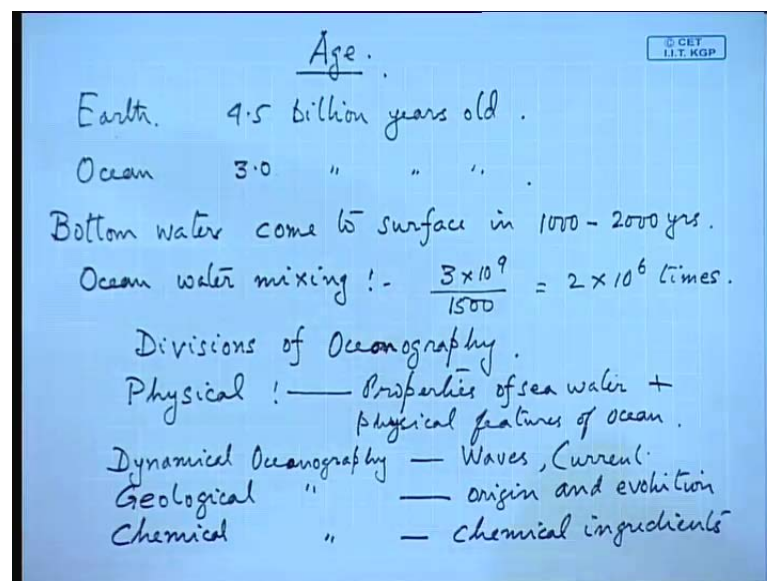 Age.
© CET
I.I.T. KGP
Earth. 4.5 billion years old.
Ocean 3.0 " " ".
Bottom water come to surface in 1000 - 2000 yrs.
Ocean water mixing :- 3×10⁹/1500 = 2×10⁶ times.
Divisions of Oceanography.
Physical :— Properties of sea water +
physical features of ocean.
Dynamical Oceanography — Waves, Current.
Geological " — origin and evolution
Chemical " — chemical ingredients